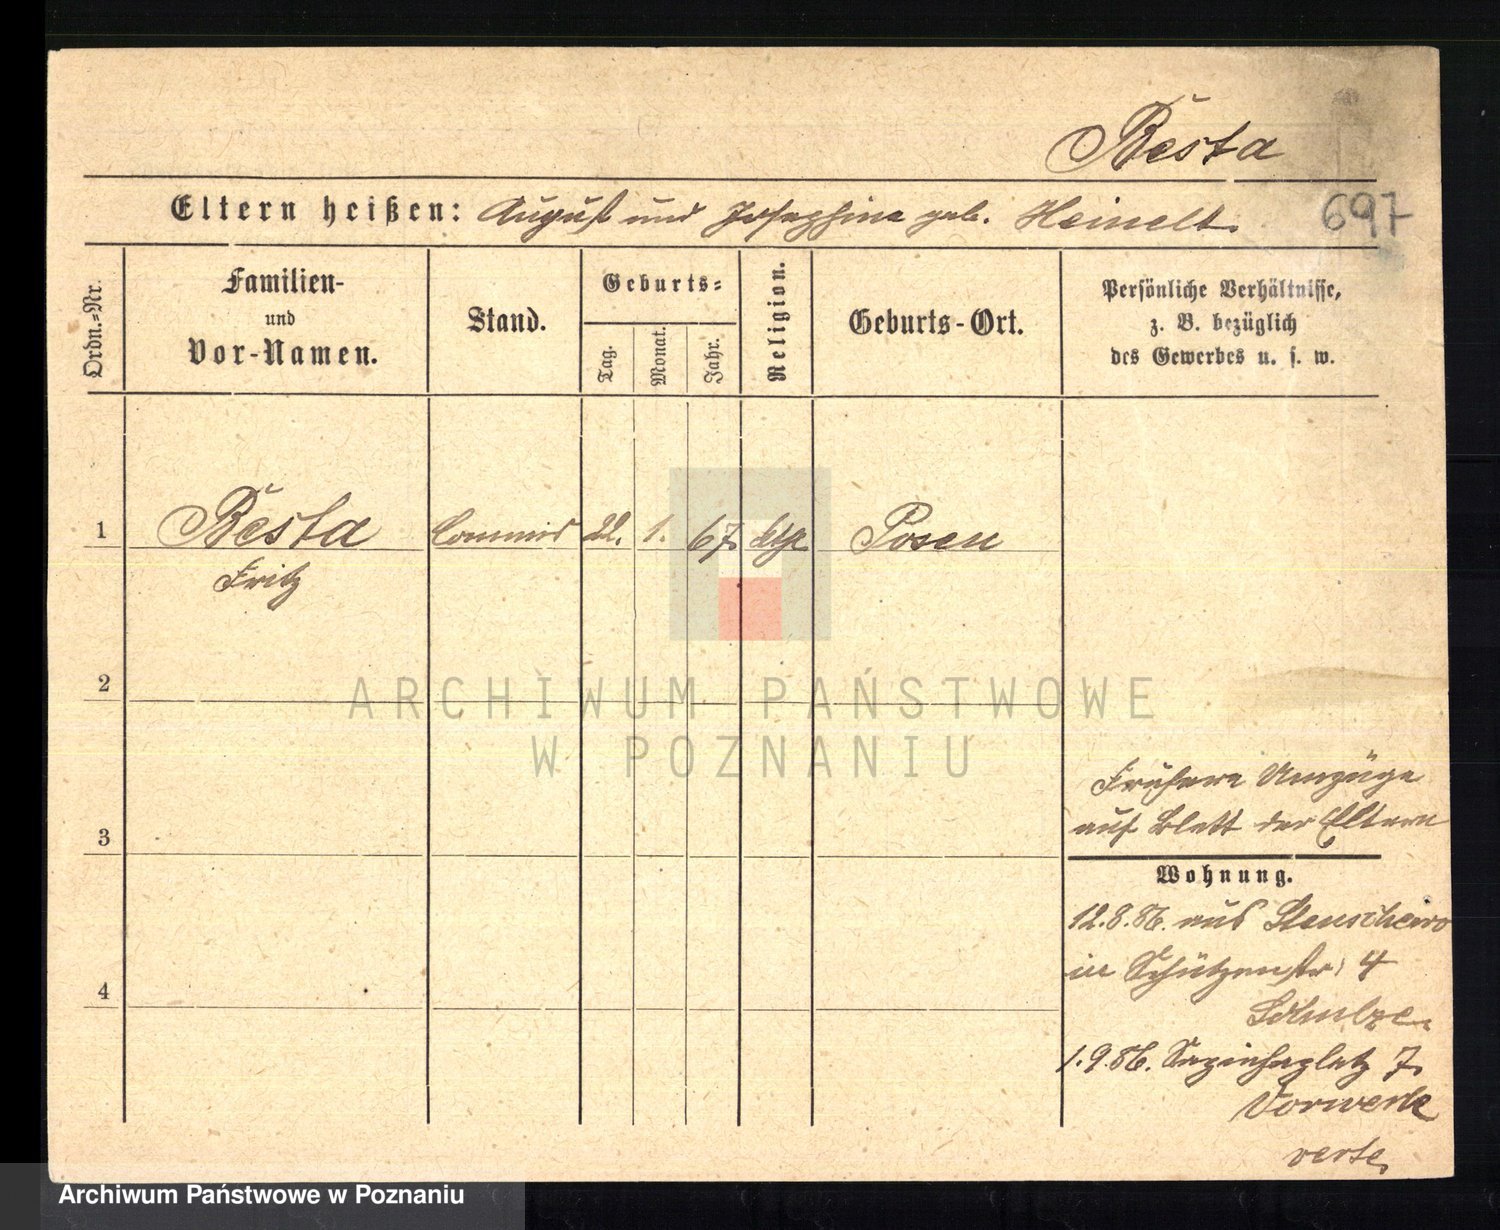 Besta
Eltern heißen: August und Josephine geb. Heinelt.
697
Ordn.=Nr.
Familien-
und
Vor-Namen.
Stand.
Geburts=
Tag.
Monat.
Jahr.
Religion.
Geburts-Ort.
Persönliche Verhältnisse,
z. B. bezüglich
des Gewerbes u. s. w.
1
Besta
Fritz
Commis
22.
1.
67
ktp
Posen
2
ARCHIWUM PAŃSTWOWE
W POZNANIU
Frühere Umzüge
auf Blatt der Eltern
3
Wohnung.
12.8.86. aus Stenschewo
in Schützenstr. 4
Schulze.
4
1.9.86. Sapiehaplatz 7.
Vorwerk
verte.
Archiwum Państwowe w Poznaniu